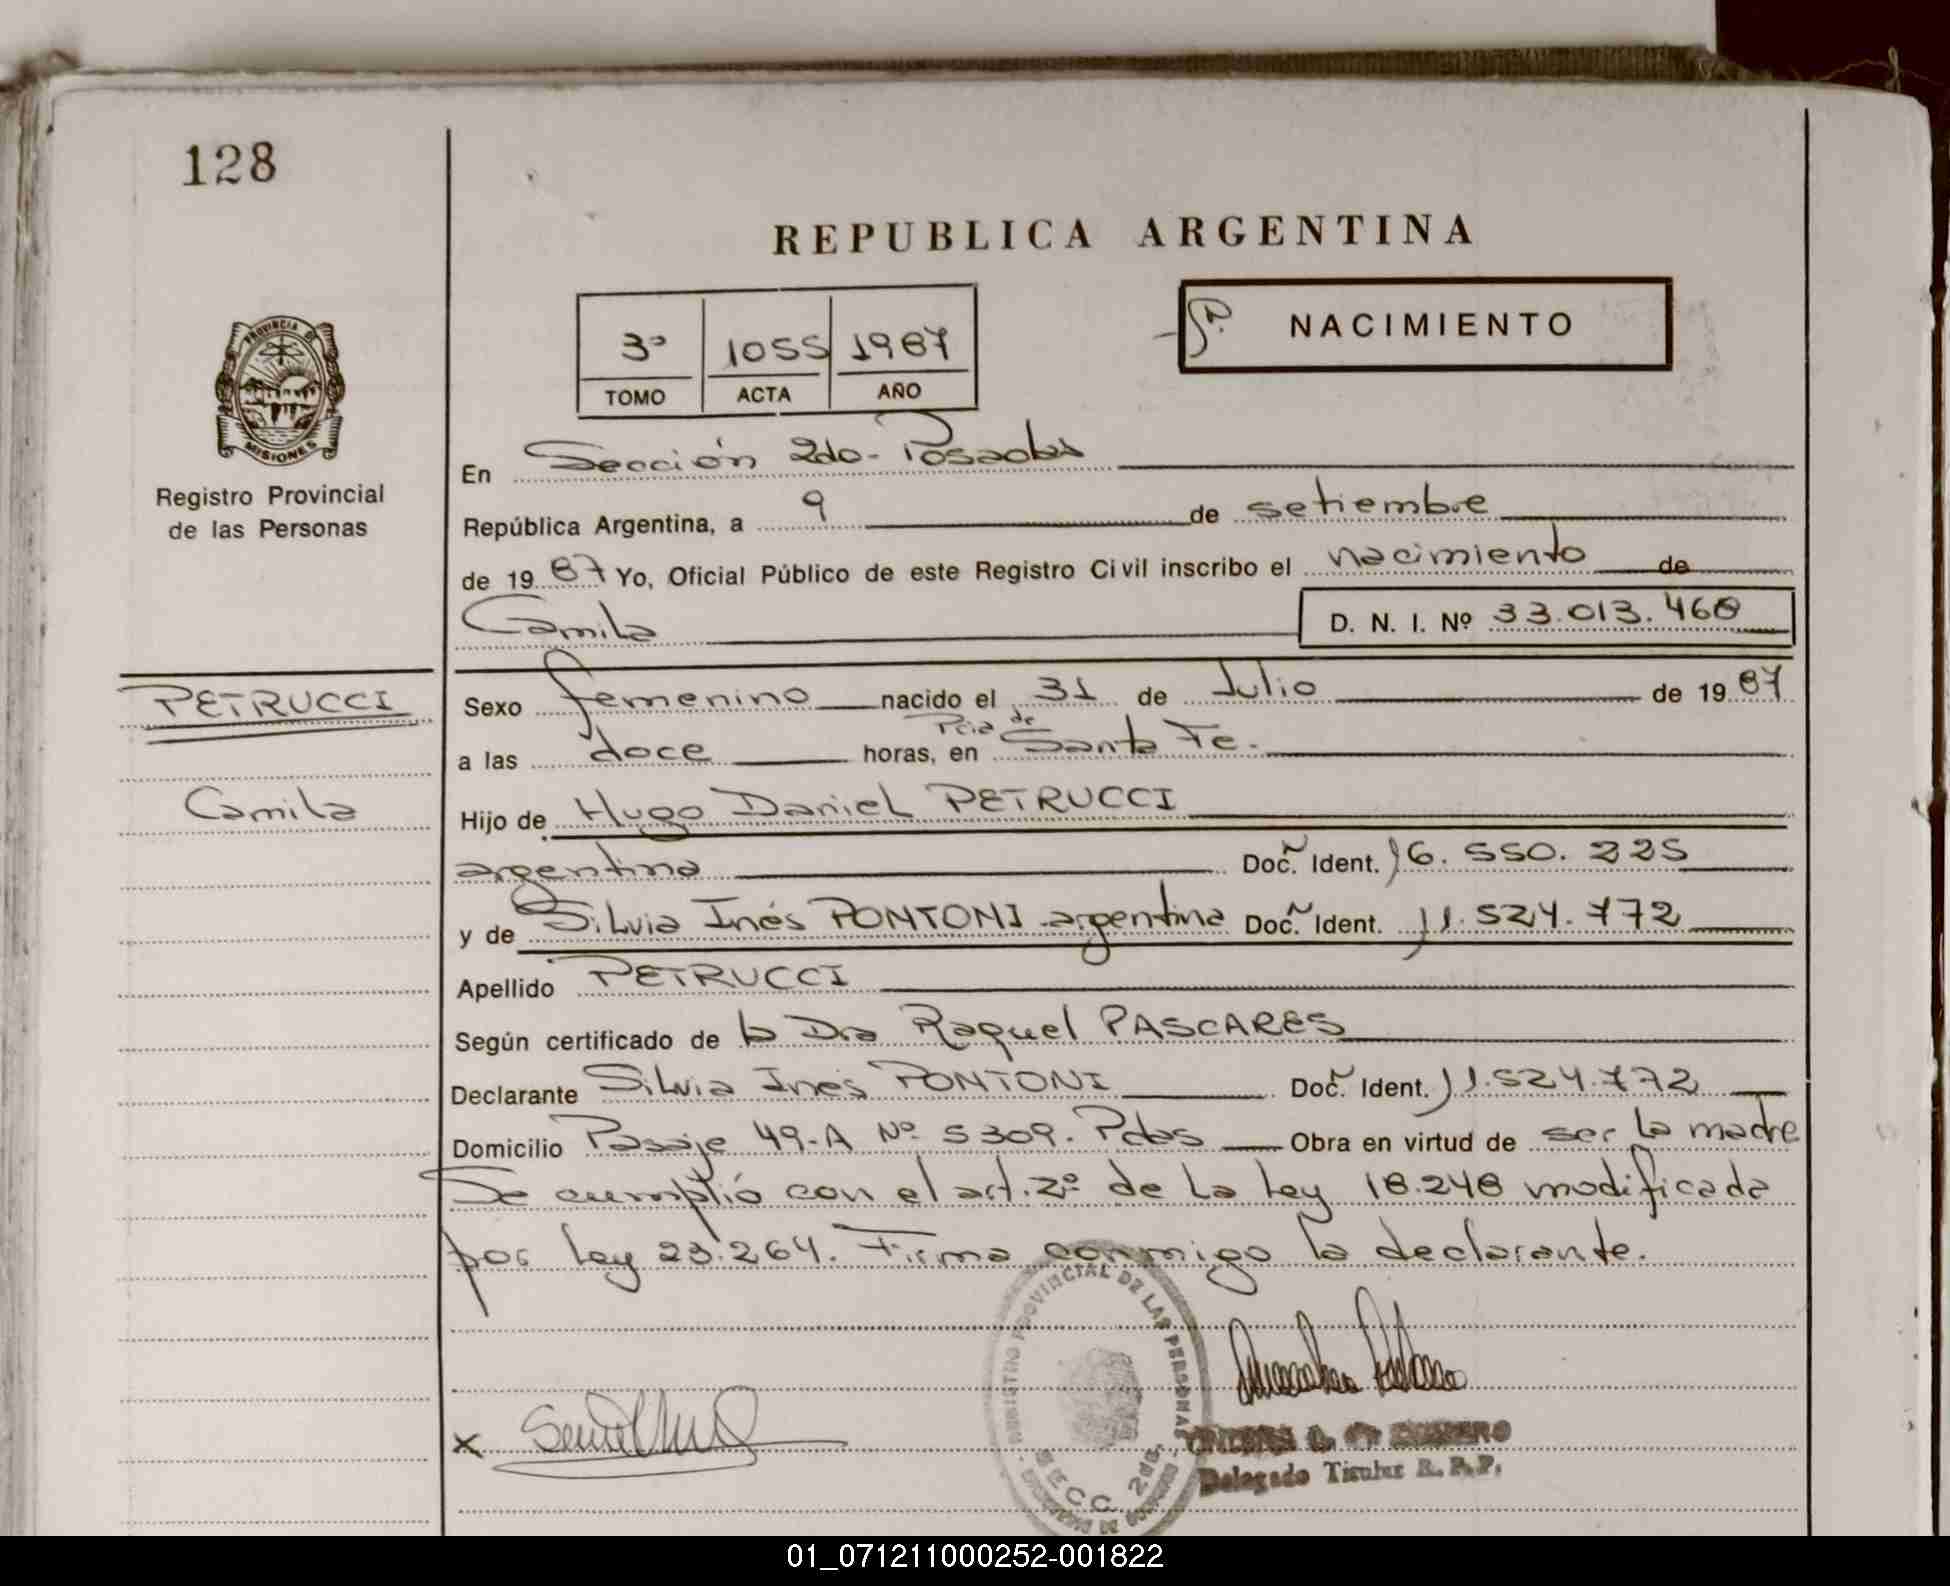 128
REPUBLICA ARGENTINA
3º 1055 1987
TOMO ACTA AÑO
NACIMIENTO
PROVINCIA DE
MISIONES
Registro Provincial
de las Personas
En Sección 2da- Posadas
República Argentina, a 9 de setiembre
de 1987 Yo, Oficial Público de este Registro Civil inscribo el nacimiento de
Camila D. N. I. Nº 33.013.468
PETRUCCI
Camila
Sexo femenino nacido el 31 de Julio de 1987
a las doce horas, en Pcia de Santa Fe.
Hijo de Hugo Daniel PETRUCCI
argentino Doc. Ident. 16.550.225
y de Silvia Inés PONTONI argentina Doc. Ident. 11.524.772
Apellido PETRUCCI
Según certificado de la Dra Raquel PASCARES
Declarante Silvia Inés PONTONI Doc. Ident. 11.524.772
Domicilio Pasaje 49-A Nº 5309. Pdas Obra en virtud de ser la madre
Se cumplió con el art. 2º de la Ley 18.248 modificada
por Ley 23.264. Firma conmigo la declarante.
REGISTRO PROVINCIAL DE LAS PERSONAS
SECC. 2da.
X
Delegado Titular R. P. P.
01_071211000252-001822